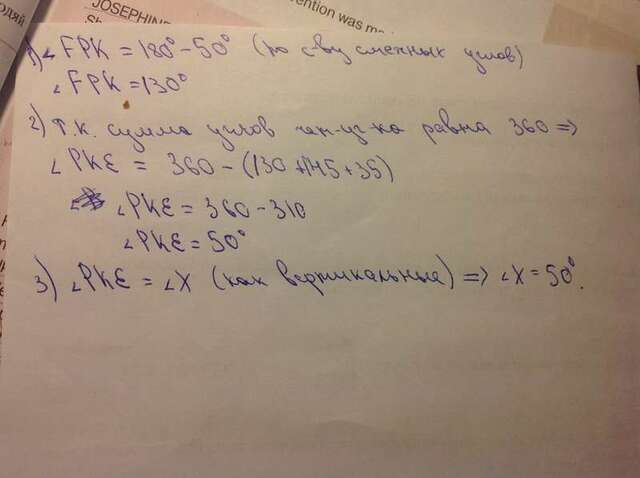 ОДЯЙ
JOSEPHINE
vention was m
1) ∠FPK = 180° - 50° (по св-ву смежных углов)
∠FPK = 130°
2) т.к. сумма углов чет-уг-ка равна 360 =>
∠PKE = 360 - (130 + 145 + 35)
∠PKE = 360 - 310
∠PKE = 50°
3) ∠PKE = ∠X (как вертикальные) => ∠X = 50°.